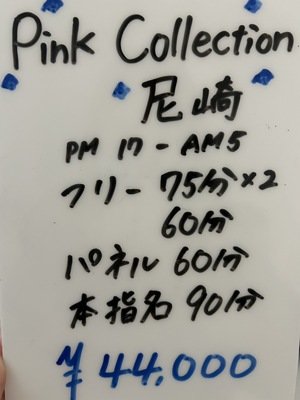 Pink Collection
尼崎
PM 17 - AM5
フリー 75分×2
60分
パネル 60分
本指名 90分
¥44,000